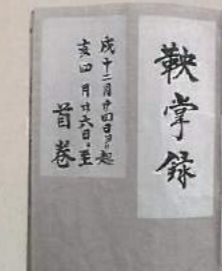 鞅掌録
戌十二月廿四日ヨリ起
亥四月廿六日ニ至
首巻